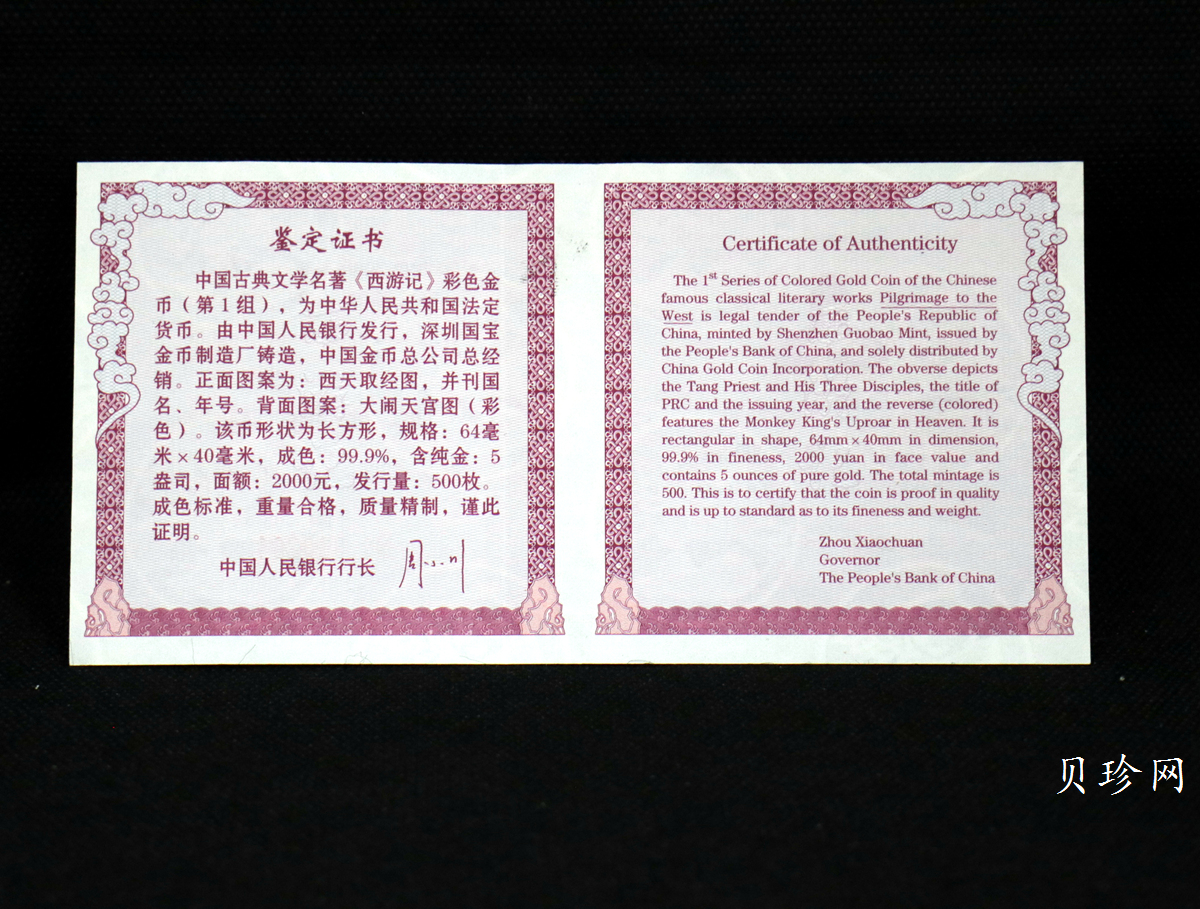 鉴定证书
中国古典文学名著《西游记》彩色金
币（第1组），为中华人民共和国法定
货币。由中国人民银行发行，深圳国宝
金币制造厂铸造，中国金币总公司总经
销。正面图案为：西天取经图，并刊国
名、年号。背面图案：大闹天宫图（彩
色）。该币形状为长方形，规格：64毫
米×40毫米，成色：99.9%，含纯金：5
盎司，面额：2000元，发行量：500枚。
成色标准，重量合格，质量精制，谨此
证明。
中国人民银行行长 周小川
Certificate of Authenticity
The 1st Series of Colored Gold Coin of the Chinese
famous classical literary works Pilgrimage to the
West is legal tender of the People's Republic of
China, minted by Shenzhen Guobao Mint, issued by
the People's Bank of China, and solely distributed by
China Gold Coin Incorporation. The obverse depicts
the Tang Priest and His Three Disciples, the title of
PRC and the issuing year, and the reverse (colored)
features the Monkey King's Uproar in Heaven. It is
rectangular in shape, 64mm×40mm in dimension,
99.9% in fineness, 2000 yuan in face value and
contains 5 ounces of pure gold. The total mintage is
500. This is to certify that the coin is proof in quality
and is up to standard as to its fineness and weight.
Zhou Xiaochuan
Governor
The People's Bank of China
贝珍网